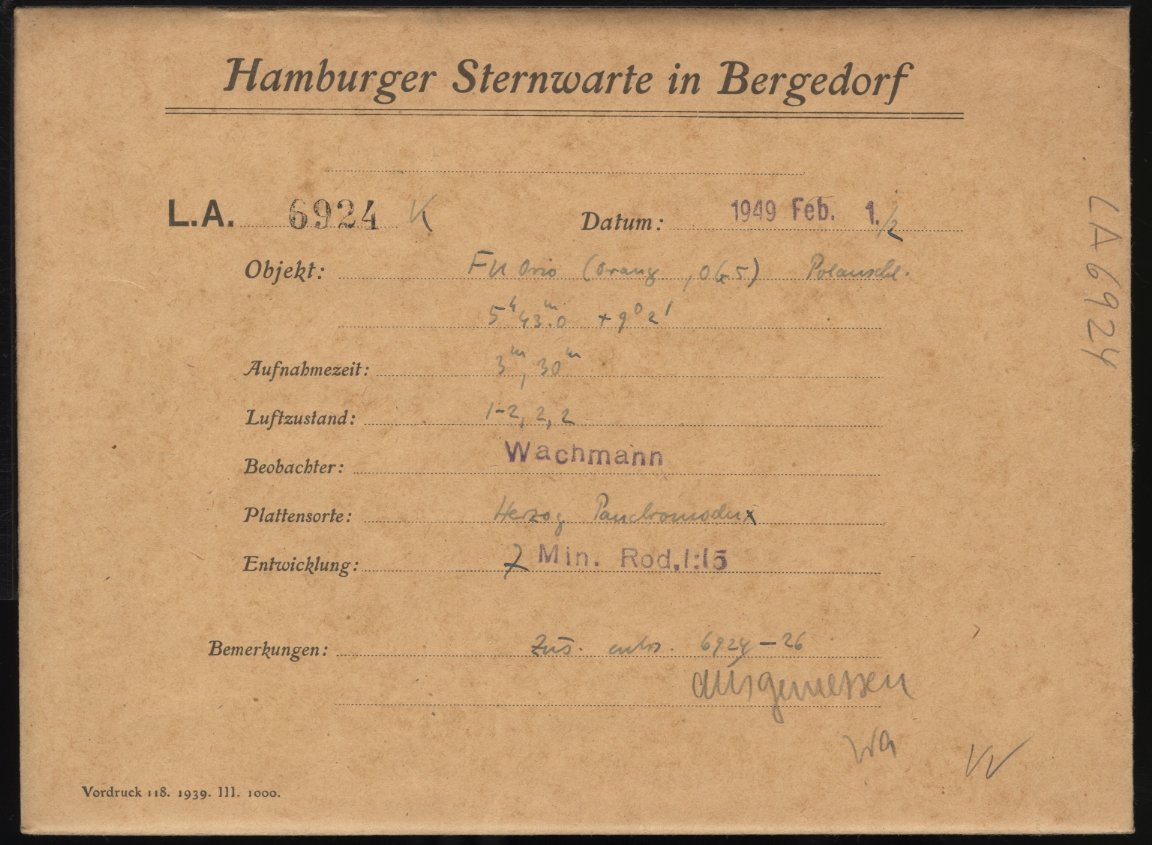 Hamburger Sternwarte in Bergedorf
L.A. 6924 K Datum: 1949 Feb. 1./2
Objekt: FU Orio (Orang , OG5)
5ʰ 43ᵐ.0 +9⁰ 2'
Aufnahmezeit: 3ᵐ, 30ᵐ
Luftzustand: 1-2, 2, 2
Beobachter: Wachmann
Plattensorte: Herzog
Entwicklung: 7 Min. Rod. 1:15
Bemerkungen: Zus. entw. 6924-26
ausgemessen
Wa
Vordruck 118. 1939. III. 1000.
LA 6924